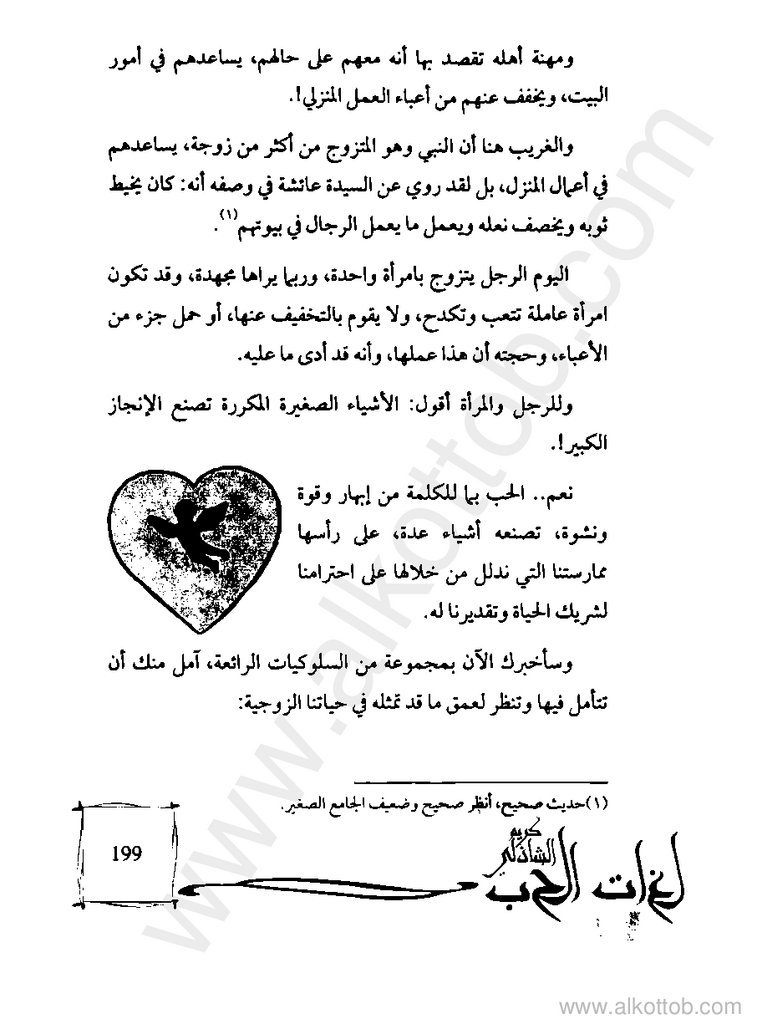 ومهنة أهله تقصد بها أنه معهم على حالهم، يساعدهم في أمور
البيت، ويخفف عنهم من أعباء العمل المنزلي!.
والغريب هنا أن النبي وهو المتزوج من أكثر من زوجة، يساعدهم
في أعمال المنزل، بل لقد روي عن السيدة عائشة في وصفه أنه: كان يخيط
ثوبه ويخصف نعله ويعمل ما يعمل الرجال في بيوتهم(١).
اليوم الرجل يتزوج بامرأة واحدة، وربما يراها مجهدة، وقد تكون
امرأة عاملة تتعب وتكدح، ولا يقوم بالتخفيف عنها، أو حمل جزء من
الأعباء، وحجته أن هذا عملها، وأنه قد أدى ما عليه.
وللرجل والمرأة أقول: الأشياء الصغيرة المكررة تصنع الإنجاز
الكبير!.
نعم.. الحب بما للكلمة من إبهار وقوة
ونشوة، تصنعه أشياء عدة، على رأسها
ممارستنا التي ندلل من خلالها على احترامنا
لشريك الحياة وتقديرنا له.
وسأخبرك الآن بمجموعة من السلوكيات الرائعة، آمل منك أن
تتأمل فيها وتنظر لعمق ما قد تمثله في حياتنا الزوجية:
(١)حديث صحيح، أنظر صحيح وضعيف الجامع الصغير.
كريم
الشاذلي
لغات الحب
199
www.alkottob.com
www.alkottob.com